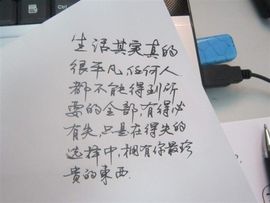 生活其实真的
很平凡,任何人
都不能得到所
要的全部,有得必
有失,只是在得失的
选择中,拥有你最珍
贵的東西